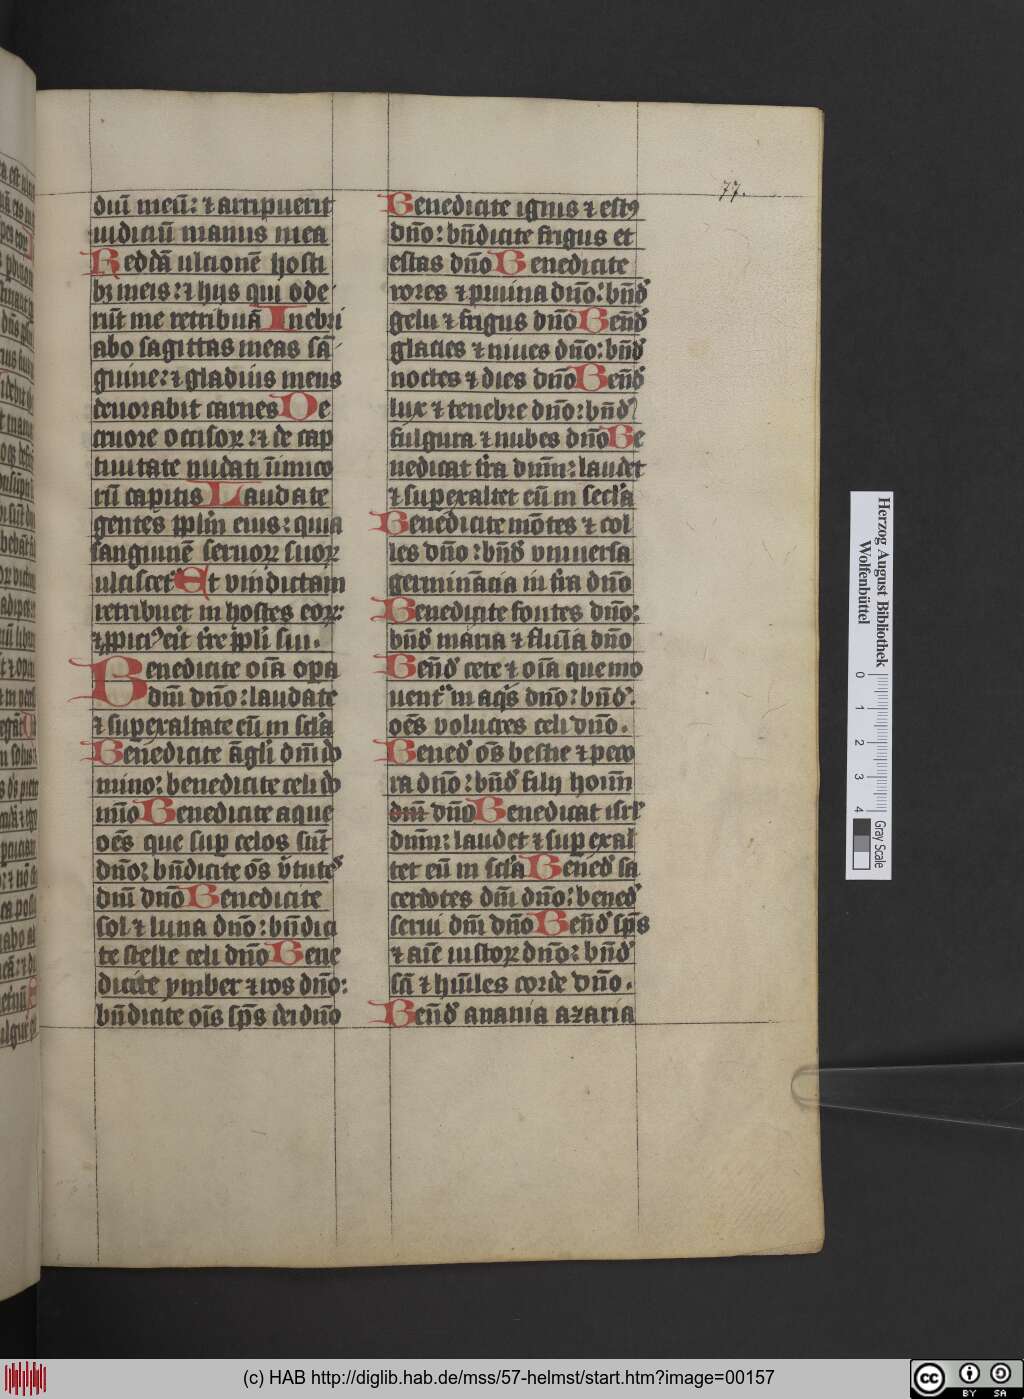 77.
diū meū: ⁊ arripuerit
iudiciū manus mea
Reddā ulcionē hosti
bꝫ meis: ⁊ hijs qui ode
rūt me retribuā Inebri
abo sagittas meas sā
guine: ⁊ gladius meus
deuorabit carnes De
cruore occisoꝝ: ⁊ de cap
tiuitate nudati inimico
rū capitis Laudate
gentes pplm̄ eius: quia
sanguinē seruoꝝ suoꝝ
ulciscet᷑ Et vindictam
retribuet in hostes eoꝝ:
⁊ ꝓpici⁹ eit tr̄e ppli sui.
Benedicite oīa oꝑa
dn̄i dn̄o: laudate
⁊ suꝑexaltate eū in scl̄a
Benedicite āgli dn̄i do
mino: benedicite celi do
mīo Benedicite aque
oēs que suꝑ celos sūt
dn̄o: bn̄dicite oēs v̄tutes
dn̄i dn̄o Benedicite
sol ⁊ luna dn̄o: bn̄dici
te stelle celi dn̄o Bene
dicite ymber ⁊ ros dn̄o:
bn̄dicite oīs sp̄s dei dn̄o
Benedicite ignis ⁊ est⁹
dn̄o: bn̄dicite frigus et
estas dn̄o Benedicite
rores ⁊ pruina dn̄o: bn̄d
gelu ⁊ frigus dn̄o Ben̄d
glacies ⁊ niues dn̄o: bn̄d
noctes ⁊ dies dn̄o Ben̄d
lux ⁊ tenebre dn̄o: bn̄d
fulgura ⁊ nubes dn̄o Be
nedicat tr̄a dn̄m: laudet
⁊ suꝑexaltet eū in secl̄a
Benedicite mōtes ⁊ col
les dn̄o: bn̄d vniuersa
germināncia in tr̄a dn̄o
Benedicite fontes dn̄o:
bn̄d maria ⁊ flūīa dn̄o
Ben̄d cete ⁊ oīa que mo
uent᷑ in aqͥs dn̄o: bn̄d
oēs volucres celi dn̄o.
Bened oēs bestie ⁊ peco
ra dn̄o: bn̄d filij hoim̄
dn̄i dn̄o Benedicat isrl̄
dn̄m: laudet ⁊ suꝑexal
tet eū in scl̄a Bened sa
cerdotes dn̄i dn̄o: bened
serui dn̄i dn̄o Ben̄d sp̄s
⁊ aīe iustoꝝ dn̄o: bn̄d
sc̄i ⁊ hūiles corde dn̄o.
Ben̄d anania azaria
Herzog August Bibliothek
Wolfenbüttel
0 1 2 3 4
Gray Scale
(c) HAB http://diglib.hab.de/mss/57-helmst/start.htm?image=00157
cc BY SA